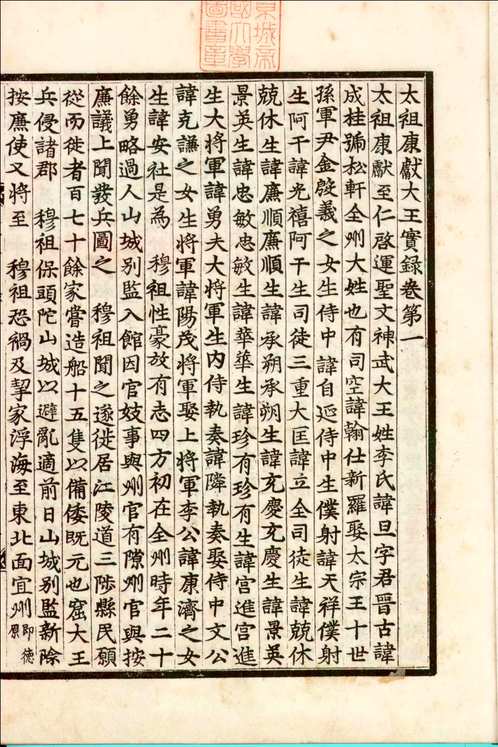 京城帝
國大學
圖書章
太祖康獻大王實錄卷第一
太祖康獻至仁啓運聖文神武大王姓李氏諱旦字君晉古諱
成桂號松軒全州大姓也有司空諱翰仕新羅娶太宗王十世
孫軍尹金殷義之女生侍中諱自延侍中生僕射諱天祥僕射
生阿干諱光禧阿干生司徒三重大匡諱立全司徒生諱兢休
兢休生諱廉順廉順生諱承朔承朔生諱充慶充慶生諱景英
景英生諱忠敏忠敏生諱華華生諱珍有珍有生諱宮進宮進
生大將軍諱勇夫大將軍生內侍執奏諱隣執奏娶侍中文公
諱克謙之女生將軍諱陽茂將軍娶上將軍李公諱康濟之女
生諱安社是爲 穆祖性豪放有志四方初在全州時年二十
餘勇略過人山城別監入館因官妓事與州官有隙州官與按
廉議上聞發兵圖之 穆祖聞之遂徙居江陵道三陟縣民願
從而徙者百七十餘家嘗造船十五隻以備倭旣而元也窟大王
兵侵諸郡 穆祖保頭陀山城以避亂適前日山城別監新除
按廉使又將至 穆祖恐禍及挈家浮海至東北面宜州卽德源